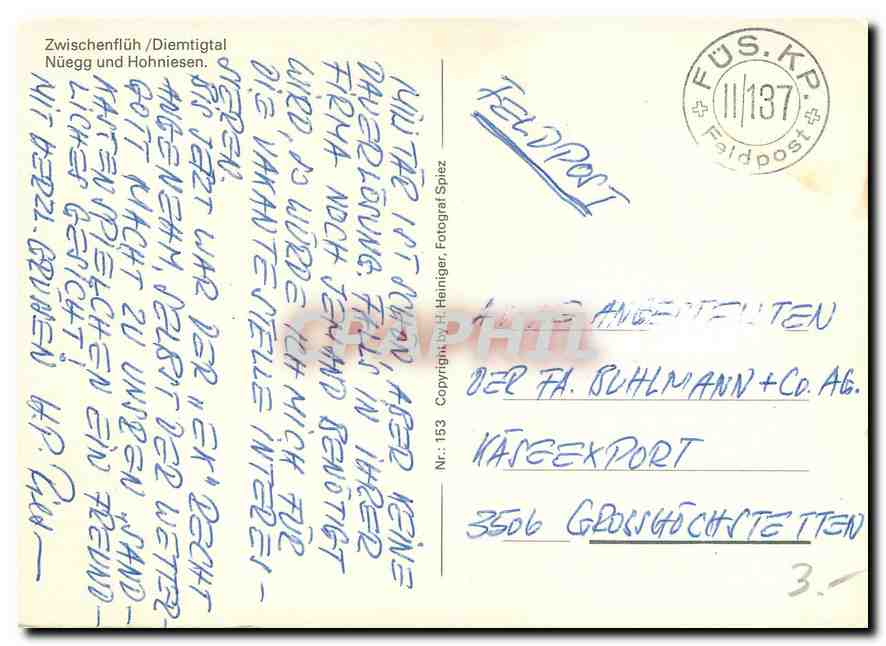 Zwischenflüh /Diemtigtal
Nüegg und Hohniesen.
MILITÄR IST SCHÖN, ABER KEINE
DAUERLÖSUNG. FALLS IN IHRER
FIRMA NOCH JEMAND BENÖTIGT
WIRD, SO WÜRDE ICH MICH FÜR
DIE VAKANTE STELLE INTERES-
SIEREN.
BIS JETZT WAR DER "EK" RECHT
ANGENEHM, SELBST DER WETTER-
GOTT MACHT ZU UNSREN SAND-
KASTENSPIELCHEN EIN FREUND-
LICHES GESICHT!
MIT HERZL. GRÜSSEN H.P.
Nr.: 153 Copyright by H. Heiniger, Fotograf Spiez
FELDPOST
FÜS. KP.
II/137
Feldpost
ANGESTELLTEN
DER FA. BUHLMANN + CO. AG.
KÄSEEXPORT
3506 GROSSHÖCHSTETTEN
3.-
GRAPHIL